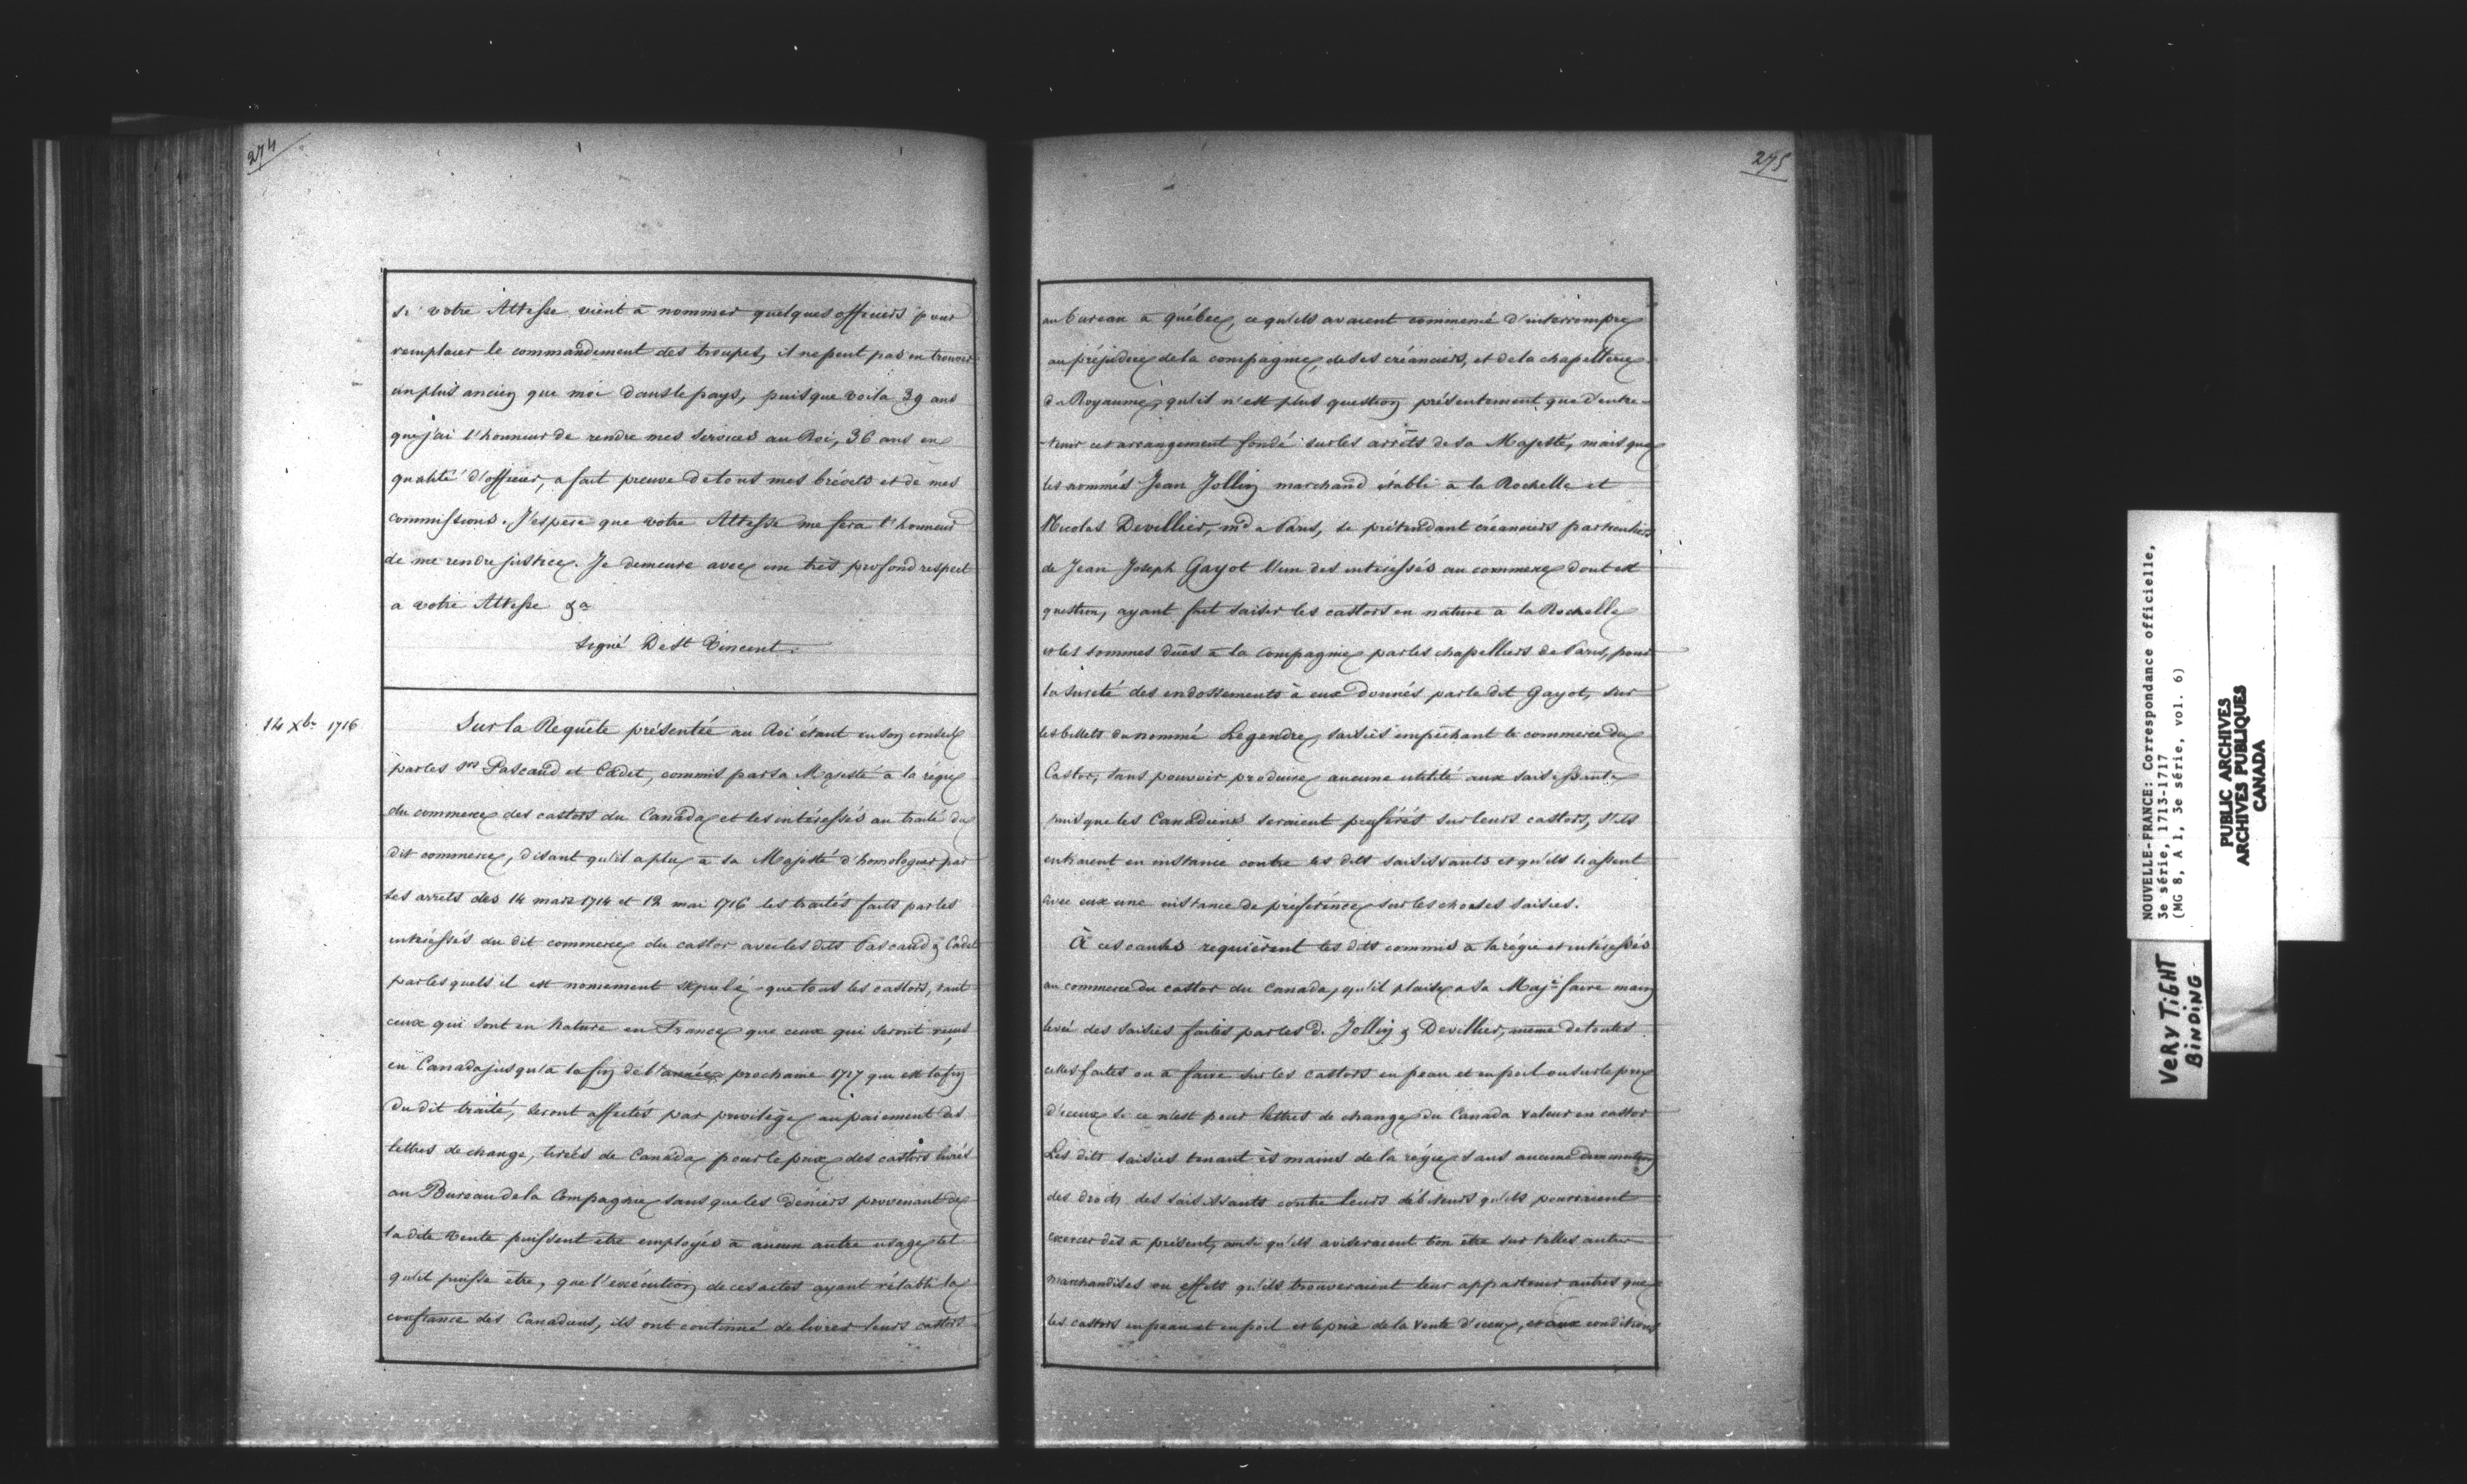 274
si votre Altesse vient à nommer quelques officiers pour
remplacer le commandement des troupes, il ne peut pas en trouver
un plus ancien que moi dans le pays, puisque voila 39 ans
que j'ai l'honneur de rendre mes services au Roi, 36 ans en
qualité d'officier, a fait preuve de tous mes brévets et de mes
commissions. J'espère que votre Altesse me fera l'honneur
de me rendre justice. Je demeure avec un très profond respect
a votre Altesse &a
signé De St Vincent.
14 Xbre 1716
Sur la Requête présentée au Roi étant en son conseil
par les Srs Pascaud et Cadet, commis par sa Majesté a la régie
du commerce des castors du Canada et les intéressés au traité du
dit commerce, disant qu'il a plu a sa Majesté d'homologuer par
ses arrets des 14 mars 1714 et 12 mai 1716 les traités faits par les
intéressés du dit commerce du castor avec les dits Pascaud & Cadet
par lesquels il est nomement stipulé que tous les castors, tant
ceux qui sont en Nature en France que ceux qui seront reçus
en Canada jusqu'à la fin de l'année prochaine 1717 qui est la fin
du dit traité, seront affectés par privilège au paiement des
lettres de change, tirées de Canada pour le prix des castors livrés
au Bureau de la Compagnie sans que les deniers provenant de
la dite vente puissent être employés à aucun autre usage tel
qu'il puisse être, que l'exécution de ces actes ayant rétabli la
confiance des Canadiens, ils ont continué de livrer leurs castors
275
au bureau a québec, ce qu'ils avaient commencé d'interrompre
au préjudice de la compagnie, de ses créanciers, et de la chapellerie
du Royaume, qu'il n'est plus question présentement que d'entre-
-tenir cet arrangement fondé sur les arrêts de sa Majesté, mais que
les nommés Jean Jollin marchand établi a la Rochelle et
Nicolas Devillier, md a Paris, se prétendant créanciers particuliers
de Jean Joseph Gayot l'un des intéressés au commerce dont est
question, ayant fait saisir les castors en nature a la Rochelle
et les sommes dues a la compagnie par les chapelliers de Paris, pour
la sureté des endossements à eux donnés par le dit Gayot, sur
les billets du nommé Legendre, saisies empêchant le commerce du
Castor, sans pouvoir produire aucune utilité aux saisissants
puisque les Canadiens seraient préférés sur leurs castors, s'ils
entraient en instance contre les dits saisissants et qu'ils
avec eux une instance de préférence sur les choses saisies.
À ces causes requièrent les dits commis a la régie et intéressés
au commerce du castor du Canada, qu'il plaise a Sa Majté faire main
levée des saisies faites par les d. Jollin & Devillier, même de toutes
celles faites ou a faire sur les castors en peau et en poil ou sur le prix
d'iceux si ce n'est pour lettres de change du Canada valeur en castor
Les dits saisies tenant ès mains de la régie sans aucune diminution
des droits des saisissants contre leurs débiteurs qu'ils pourraient
exercer dès a présent, ainsi qu'ils aviseraient bon être sur telles autres
marchandises ou effets qu'ils trouveraient leur appartenir autres que
les castors en peau et en poil et le prix de la vente d'iceux, et aux conditions
NOUVELLE-FRANCE: Correspondance officielle,
3e série, 1713-1717
(MG 8, A 1, 3e série, vol. 6)
PUBLIC ARCHIVES
ARCHIVES PUBLIQUES
CANADA
VERY TIGHT
BINDING